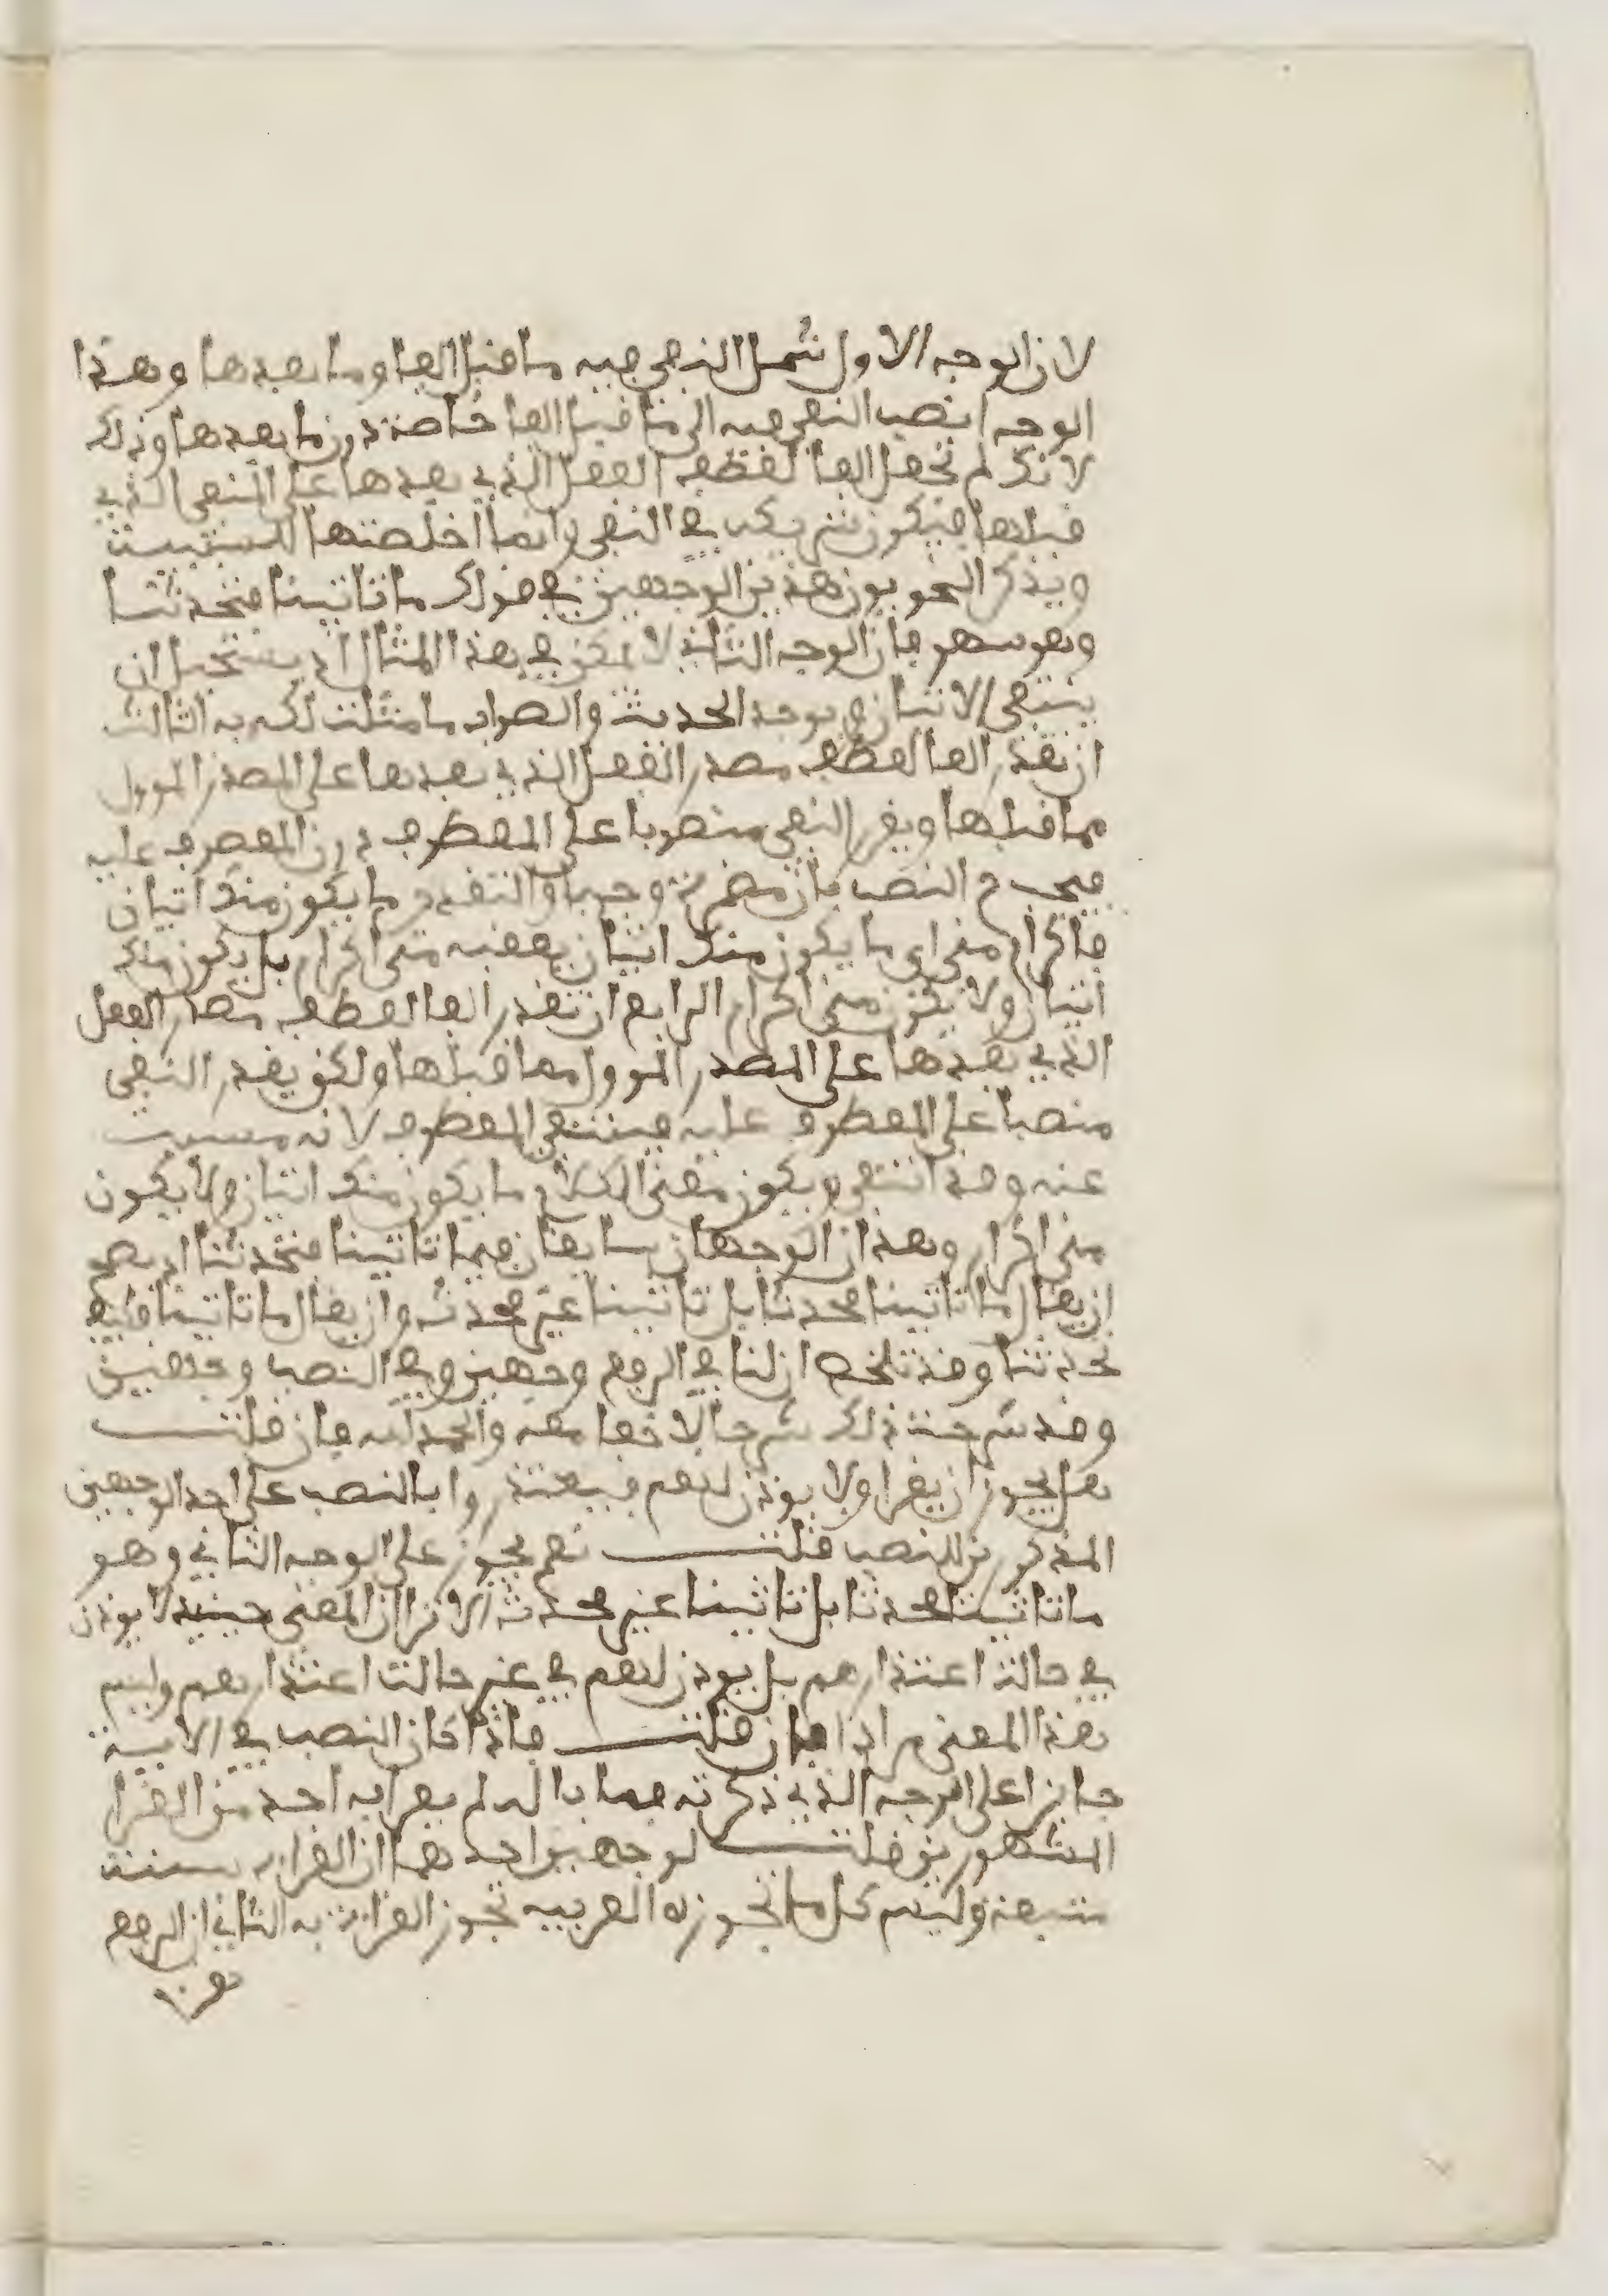 لان الوجه الاول شمل النفي فيه ما قبل الفا وما بعدها وهذا
الوجه انصب النفي فيه الى ما قبل الفا خاصة دون ما بعدها وذلك
لانك لم تجعل الفا لعطف الفعل الذي بعدها على المنفي الذي
قبلها فيكون شريكه في النفي وانما اخلصتها للسببية
ويذكر النحويون هذين الوجهين في قولك ما تاتينا فتحدثنا
وهو سهو فان الوجه الثاني لا يمكن في هذا المثال اذ يستحيل ان
ينتفي الاتيان ويوجد الحديث والصواب ما مثلت لك به الثالث
ان تقدر الفا لعطف مصدر الفعل الذي بعدها على المصدر المؤول
مما قبلها ويقدر النفي منصوبا على المعطوف دون المعطوف عليه
فيجب ح النصب بان مضمرة وجوبا والتقدير ما يكون منك اتيان
فاكرام مني اي ما يكون منك اتيان يعقبه مني اكرام بل يكون منك
اتيان ولا يكون مني اكرام الرابع ان تقدر الفا لعطف مصدر الفعل
الذي بعدها على المصدر المؤول مما قبلها ولكن يقدر النفي
منصبا على المعطوف عليه فينتفي المعطوف لانه مسبب
عنه وقد انتفى ويكون معنى الكلام ما يكون منك اتيان ولا يكون
مني اكرام وهذان الوجهان سايغان في ما تاتينا فتحدثنا اذ يصح
ان يقال ما تاتينا محدثا بل تاتينا غير محدث وان يقال ما تاتينا فكيف
تحدثنا وقد تلخص ان لنا في الرفع وجهين وفي النصب وجهين
وقد شرحت ذلك شرحا لا خفا معه والحمد لله فان قلت
هل يجوز ان يقرا ولا يوذن لهم فيعتذروا بالنصب على احد الوجهين
المذكورين للنصب قلت نعم يجوز على الوجه الثاني وهو
ما تاتينا محدثا بل تاتينا غير محدث الا ترا ان المعنى حينيذ لا يوذن
في حالة اعتذارهم بل يوذن لهم في غير حالة اعتذارهم وليس
هذا المعنى مرادا فان قلت فاذا كان النصب في الاية
جايزا على الوجه الذي ذكرته فما باله لم يقرا به احد من القرا
المشهورين قلت لوجهين احدهما ان القراءة سنة
متبعة وليس كل ما تجوزه العربيه تجوز القراءة به الثاني ان الرفع